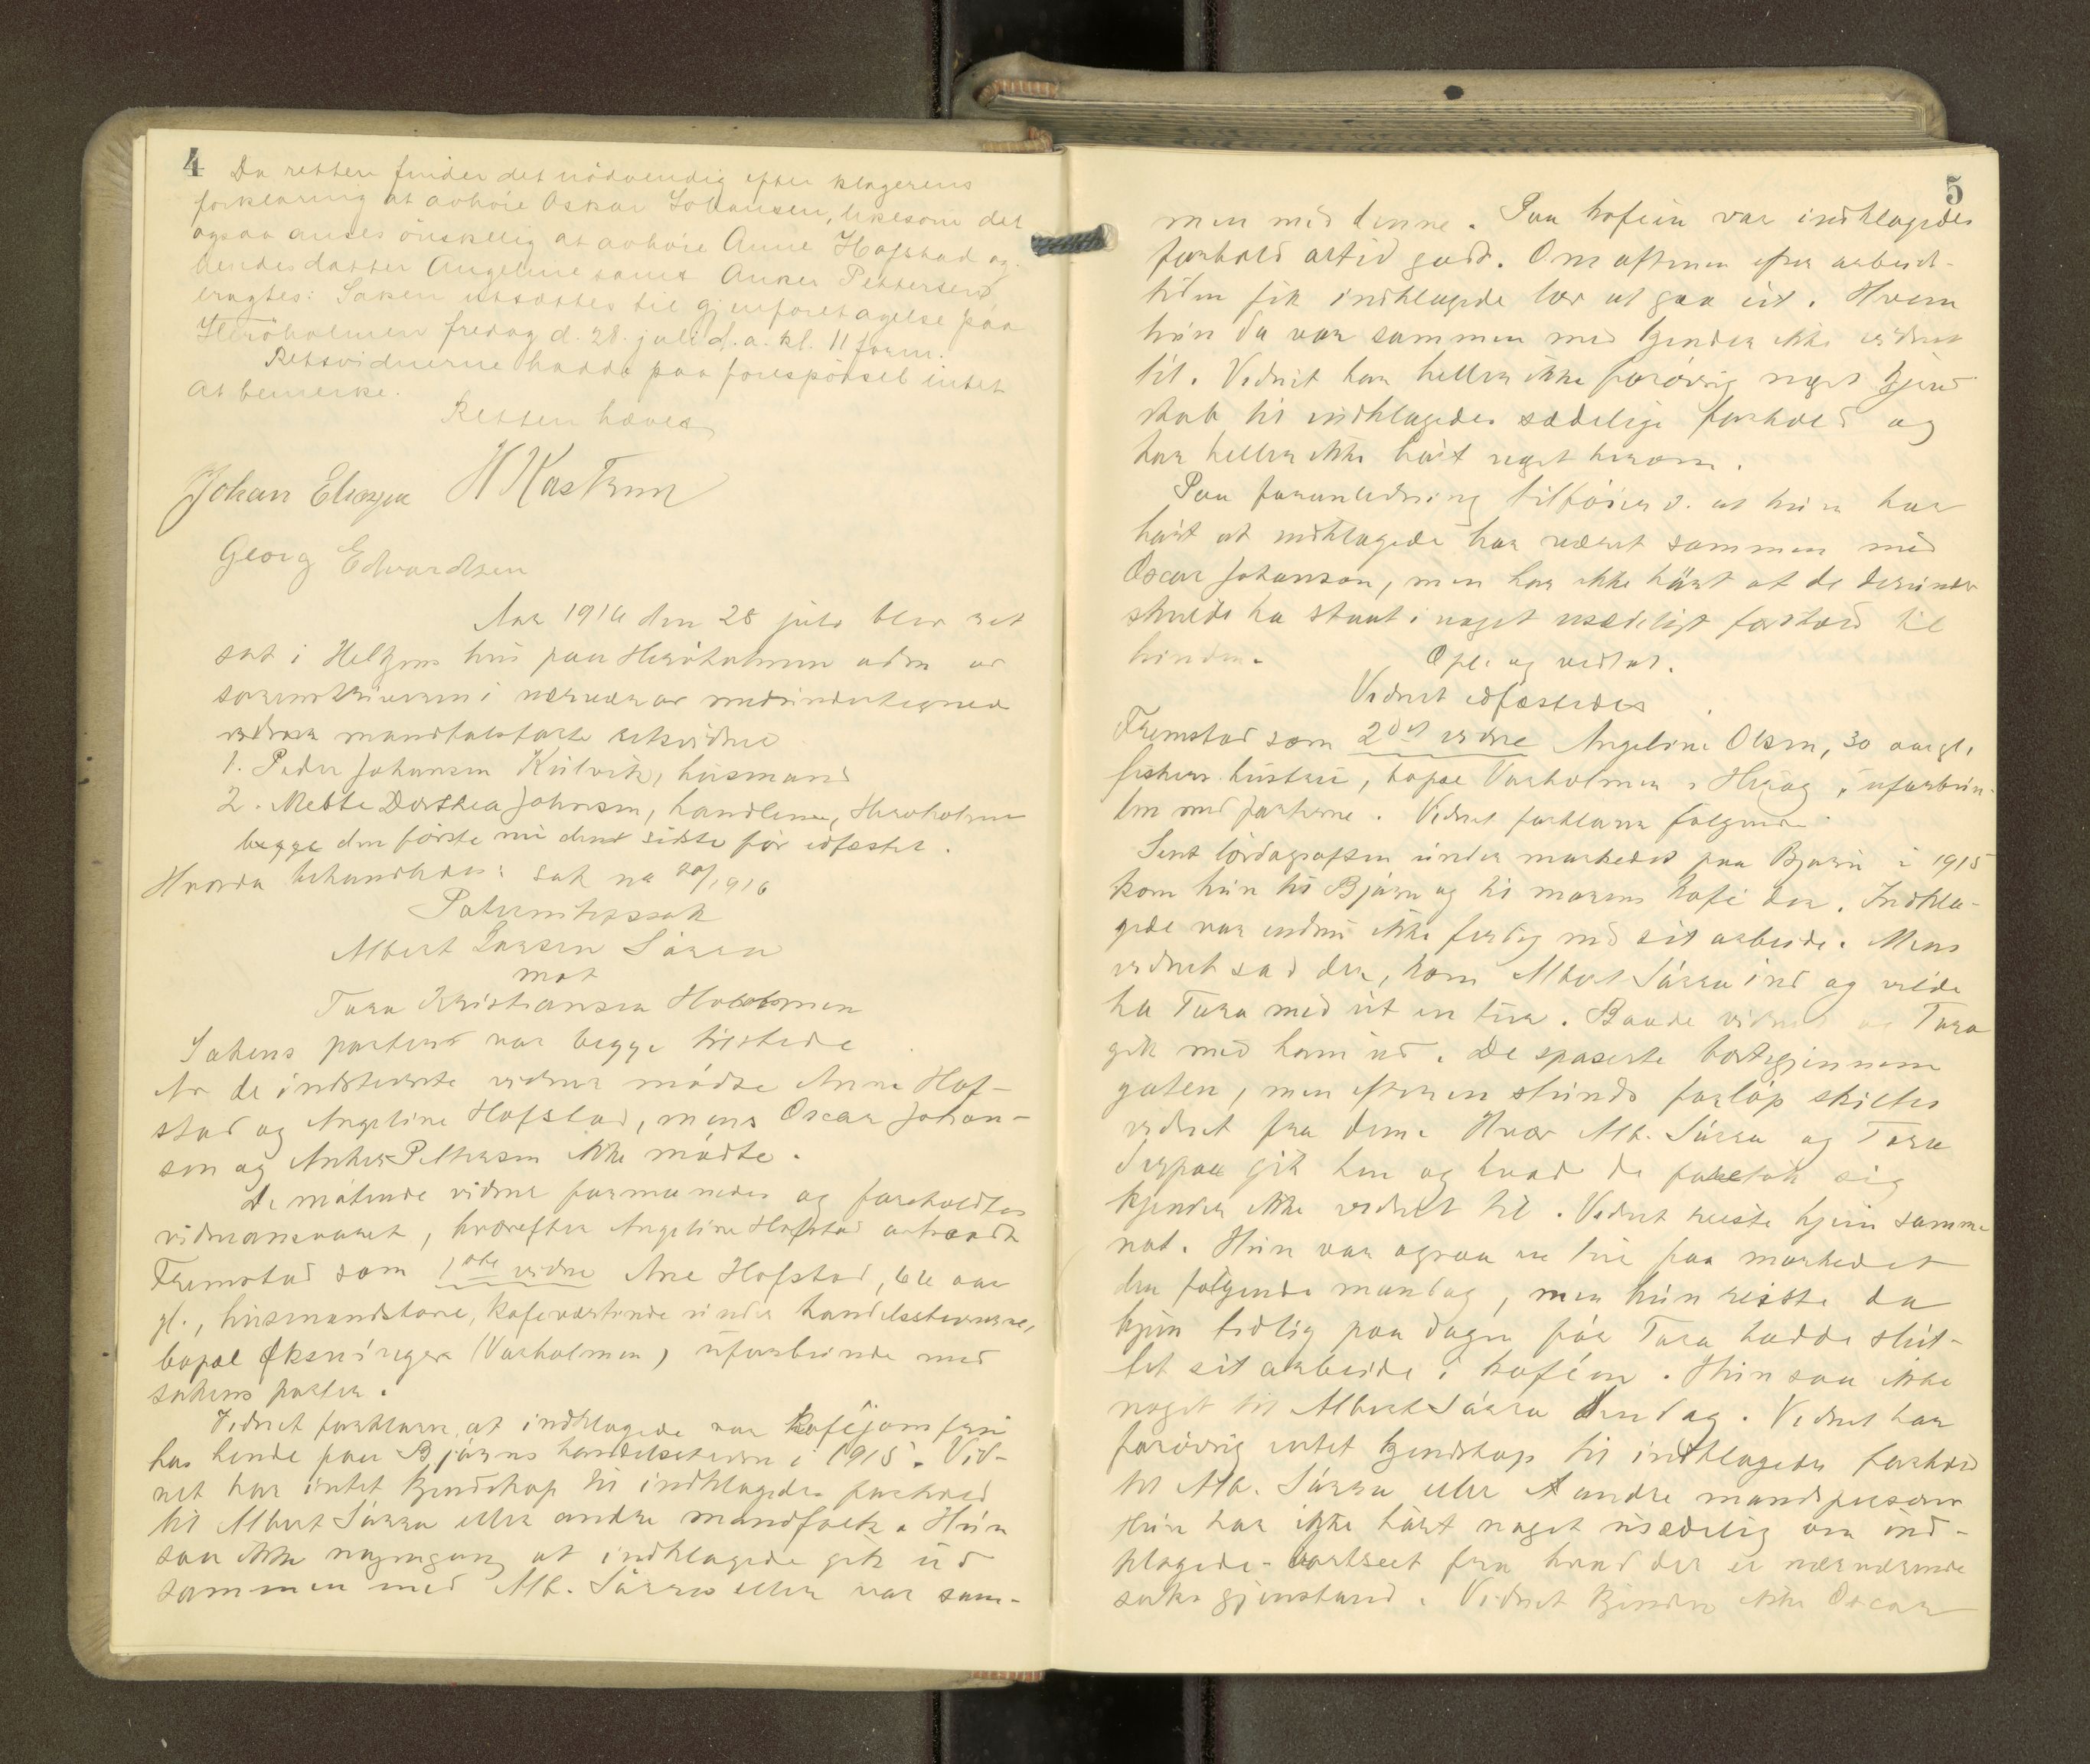 4
Da retten finder det nödvendig efter klagerens
forklaring at avhöre Oskar Johansen, likesom det
ogsaa anses önskelig at avhöre Anne Hofstad og
hendes datter Angeline samt Anker Pettersen,
eragtes: Saken utsættes til gjenforetagelse paa
Heröholmen fredag d. 28. juli d. a. kl. 11 form.
Retsvidnerne hadde paa forespörsel intet
at bemerke.
Retten hævet
Johan Eliassen H Kastrun
Georg Edvardsen
Aar 1916 den 28 juli blev ret
sat i hus paa Heröholmen adm av
sorenskriveren i nærvær av medundertegnede
mandtalsförte retsvidner
1. Peder Johansen Kulvik, husmand
2. Mette Dorthea Johnsen, handlende, Heröholmen
begge den förste nu den sidste för edfæstet.
Hvorda behandledes: sak nr 20/1916
Paternitetssak
Albert Larsen Sörra
mot
Tora Kristiansen Holmen
Sakens parter var begge tilstede
Av de indstevnte vidner mödte Anne Hof-
stad og Angeline Hofstad, mens Oscar Johan-
sen og Anker Pettersen ikke mödte.
De mötende vidner formanedes og foreholdtes
vidneansvaret, hvorefter Angeline Hofstad
Fremstod som 1ste vidne Ane Hofstad, 64 aar
gl., husmandskone, kafevertinde under handelsstevnerne,
bopæl Öksningen (Varholmen) uforbunde med
sakens parter.
Vidnet forklarer, at indklagede var kaféjomfru
hos hende paa Bjørns handelsstevne i 1915. Vid-
net har intet kjendskap til indklagedes forhold
til Albert Sörra eller andre mandfolk. Hun
saa ikke nogengang at indklagede gik ud
sammen med Alb. Sörra eller var sam-
5
men med denne. Paa kafeen var indklagedes
forhold altid godt. Om aftenen efter arbeids-
tiden fik indklagede lov at gaa ut. Hvem
hun da var sammen med kjender ikke vidnet
til. Vidnet har heller ikke forövrig noget kjend
skab til indklagedes sædelige forhold og
har heller ikke hört noget herom.
Paa foranledning tilföier v. at hun har
hört at indklagede har været sammen med
Oscar Johanson, men har ikke hört at de derunder
skulde ha staat i noget usædeligt forhold til
hinden.
Opl. og vedtat.
Vidnet edfæstedes
Fremstod som 2det vidne Angeline Olsen, 30 aar gl.
fiskers hustru, bopæl Varholmen i Heröy, uforbun-
den med parterne. Vidnet forklarer følgende
Sent lördagsaften under markedet paa Bjørn i 1915
kom hun til Bjørn og til morens kafé der. Indkla-
gede var endnu ikke ferdig med sit arbeide. Mens
vidnet sad der, kom Albert Sörra ind og vilde
ha Tora med ut en tur. Baade vidnet og Tora
gik med ham ud. De spaserte bortigjennem
gaten, men efter en stunds forlöp skiltes
vidnet fra dem. Hvor Alb. Sörra og Tora
derpaa gik hen og hvad de foretok sig
kjender ikke vidnet til. Vidnet reiste hjem samme
nat. Hun var ogsaa en tur paa markedet
den følgende mandag, men hun reiste da
hjem tidlig paa dagen för Tora hadde slut-
tet sit arbeide i kaféen. Hun saa ikke
noget til Albert Sörra den dag. Vidnet har
forövrig intet kjendskap til indklagedes forhold
til Alb. Sörra eller andre mandspersoner
Hun har ikke hört noget usædelig om ind-
klagede - bortseet fra hvad der er nærværende
saks gjenstand. Vidnet kjender ikke Oscar